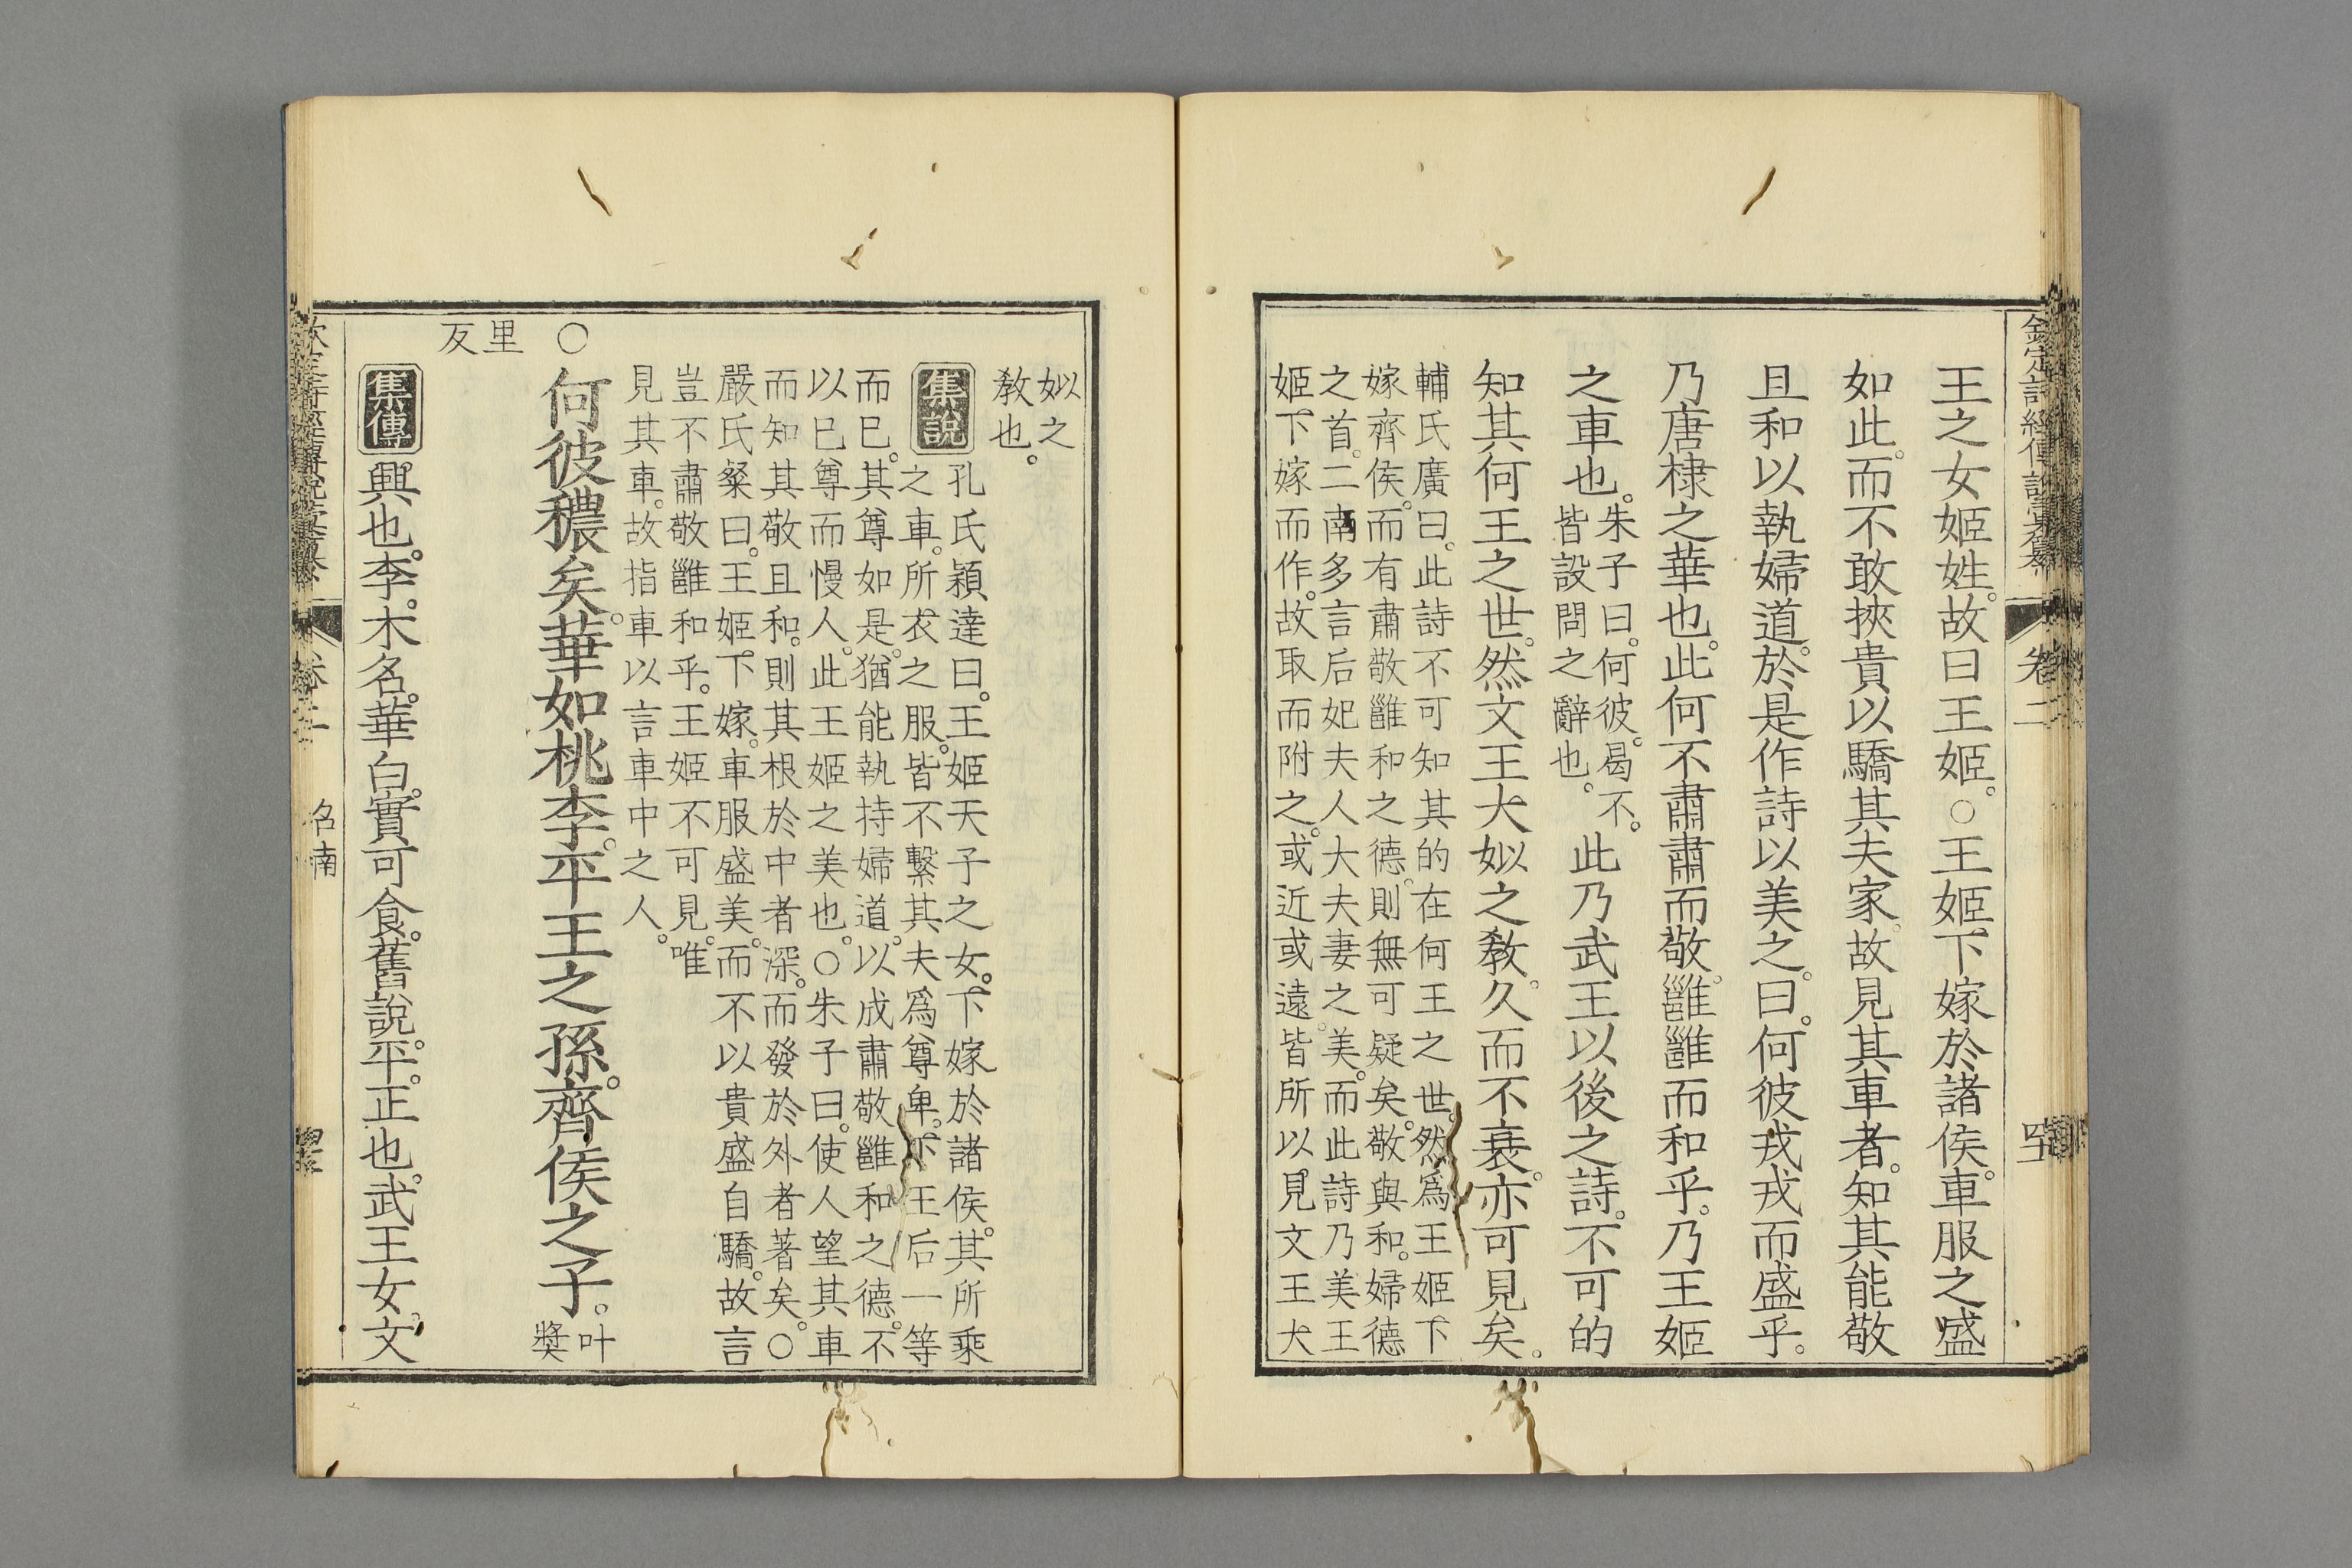 欽定詩經傳說彙纂 卷二
王之女姬姓。故曰王姬。○王姬下嫁於諸侯。車服之盛
如此。而不敢挾貴以驕其夫家。故見其車者。知其能敬
且和以執婦道。於是作詩以美之。曰。何彼戎戎而盛乎。
乃唐棣之華也。此何不肅肅而敬。雝雝而和乎。乃王姬
之車也。
朱子曰。何彼。曷不。
皆設問之辭也。
此乃武王以後之詩。不可的
知其何王之世。然文王太姒之敎。久而不衰。亦可見矣。
輔氏廣曰。此詩不可知其的在何王之世。然爲王姬下
嫁齊侯。而有肅敬雝和之德。則無可疑矣。敬與和。婦德
之首。二南多言后妃夫人大夫妻之美。而此詩乃美王
姬下嫁而作。故取而附之。或近或遠。皆所以見文王太
姒之
敎也。
集說
孔氏穎達曰。王姬天子之女。下嫁於諸侯。其所乘
之車。所衣之服。皆不繫其夫爲尊卑。下王后一等
而已。其尊如是。猶能執持婦道。以成肅敬雝和之德。不
以已尊而慢人。此王姬之美也。○朱子曰。使人望其車
而知其敬且和。則其根於中者深。而發於外者著矣。○
嚴氏粲曰。王姬下嫁。車服盛美。而不以貴盛自驕。故言
豈不肅敬雝和乎。王姬不可見。唯
見其車。故指車以言車中之人。
○何彼穠矣。華如桃李。平王之孫。齊侯之子。
叶
奬
里
反
集傳
興也。李。木名。華白。實可食。舊說。平。正也。武王女。文
卷二
召南